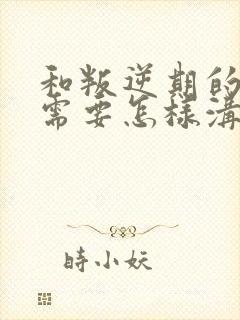 和叛逆期的
需要怎樣溝
時小妖